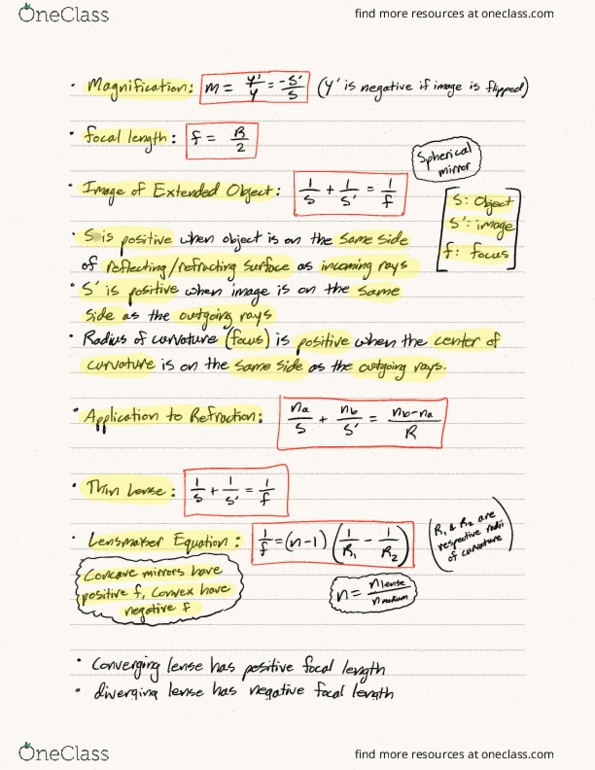 OneClass
find more resources at oneclass.com
• Magnification: m = y'/y = -s'/s (y' is negative if image is flipped)
• focal length: f = R/2
Spherical mirror
• Image of Extended Object: 1/s + 1/s' = 1/f
S: Object
S': image
f: focus
• S is positive when object is on the same side
of reflecting/refracting surface as incoming rays
• S' is positive when image is on the same
side as the outgoing rays
• Radius of curvature (focus) is positive when the center of
curvature is on the same side as the outgoing rays.
• Application to Refraction: na/s + nb/s' = nb-na/R
• Thin Lense: 1/s + 1/s' = 1/f
• Lensmaker Equation: 1/f = (n-1) (1/R1 - 1/R2)
(R1 & R2 are
respective radii
of curvature)
Concave mirrors have
positive f, Convex have
negative f
n = nlense/nmedium
• Converging lense has positive focal length
• diverging lense has negative focal length
OneClass
find more resources at oneclass.com